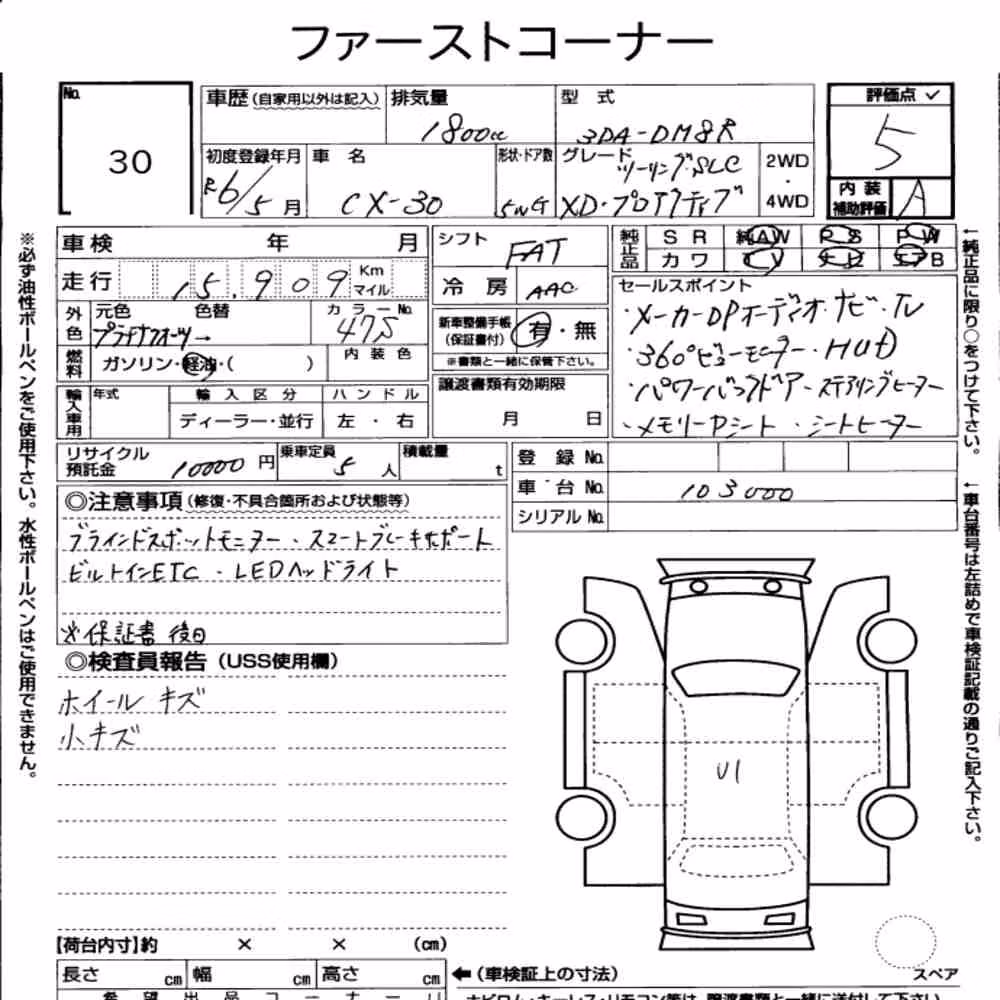 ファーストコーナー
No.
30
車歴(自家用以外は記入)
排気量
1800cc
型 式
3DA-DM8R
評価点
5
初度登録年月
R6/5月
車 名
CX-30
形状・ドア数
5WG
グレード
ツーリングSLC
XD・プロアクティブ
2WD
・
4WD
内 装
補助評価
A
車検 年 月
走行 15,909 Km マイル
外色
元色
色替
プラチナクォーツ→
カラーNo.
47S
燃料
ガソリン・軽油・( )
内 装 色
輸入車用
年式
輸 入 区 分
ディーラー・並行
ハ ン ド ル
左 ・ 右
シフト
FAT
冷 房
AAC
新車整備手帳
(保証書付)
有・無
※書類と一緒に保管下さい。
譲渡書類有効期限
月 日
純正品
S R
純AW
P S
P W
カ ワ
T V
ナ ビ
エアB
セールスポイント
・メーカーOPオーディオ・ナビ・TV
・360°ビューモニター・HUD
・パワーバックドア・ステアリングヒーター
・メモリーPシート・シートヒーター
リサイクル
預託金
10000円
乗車定員
5人
積載量
t
登 録 No.
車 台 No.
103000
シリアル No.
◎注意事項(修復・不具合箇所および状態等)
ブラインドスポットモニター・スマートブレーキサポート
ビルトインETC・LEDヘッドライト
※保証書 後日
◎検査員報告(USS使用欄)
ホイール キズ
小キズ
U1
スペア
【荷台内寸】約 × × (cm)
長さ cm
幅 cm
高さ cm
←(車検証上の寸法)
希 望 出 品 コ ー ナ ー
※必ず油性ボールペンをご使用下さい。水性ボールペンはご使用できません。
↑純正品に限り○をつけて下さい。
↑車台番号は左詰めで車検証記載の通りご記入下さい。